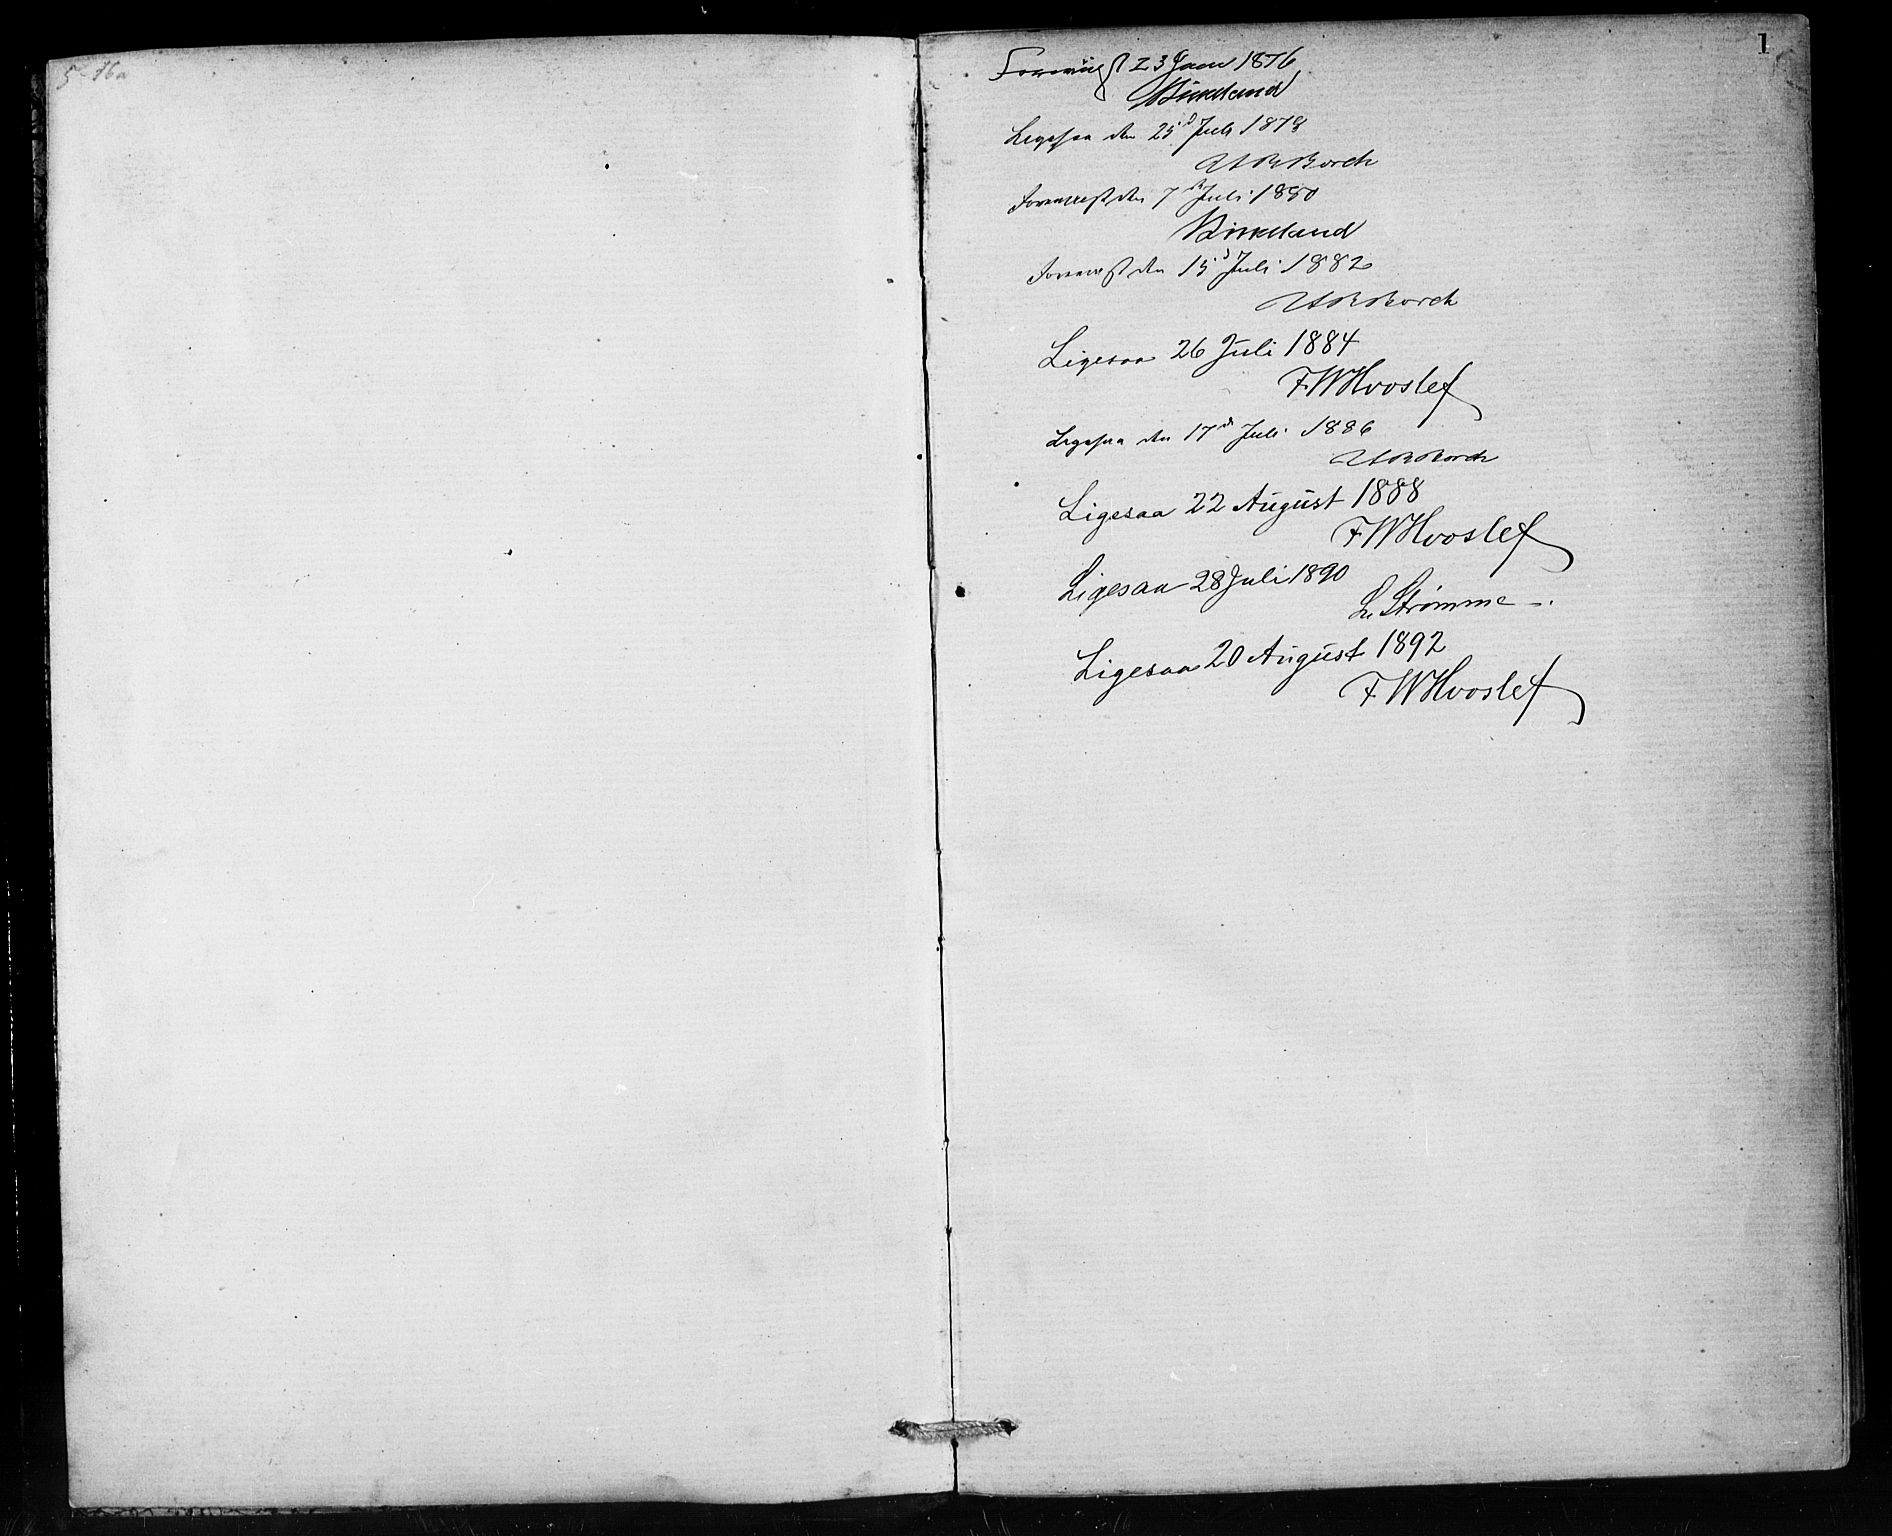 5-16a
1
Foreviist 23 Juni 1876
Birkeland
Ligesaa den 25d Juli 1878
Borch
Forevist den 7de Juli 1880
Birkeland
Forevist den 15d Juli 1882
Borch
Ligesaa 26 Juli 1884
F. W. Hvoslef
Ligesaa den 17de Juli 1886
Borch
Ligesaa 22 August 1888
F W Hvoslef
Ligesaa 28 Juli 1890
L. Strømme
Ligesaa 20 August 1892
F. W Hvoslef